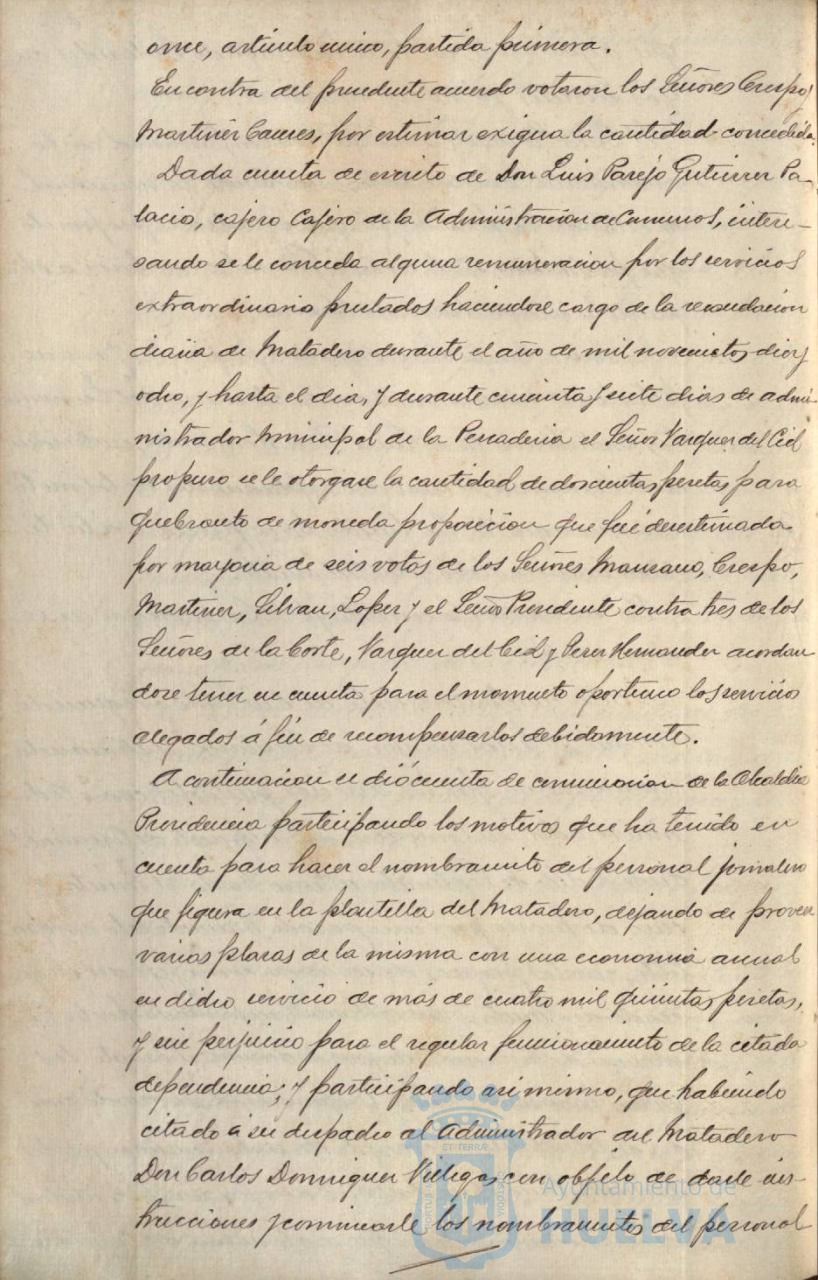 once, artículo único, partida primera.
En contra del precedente acuerdo votaron los Señores Crespo y
Martínez Cauces, por estimar exigua la cantidad concedida.
Dada cuenta de escrito de Don Luis Parejo Gutierrez Pa-
lacio, cajero Cajero de la Administración de Consumos, intere-
sando se le conceda alguna remuneración por los servicios
extraordinario prestados haciendose cargo de la recaudación
diaria de Matadero durante el año de mil novecientos diez y
ocho, y hasta el dia, y durante cincuenta y siete dias de admi-
nistrador municipal de la Pescaderia el Señor Vazquez del Cid
propuso se le otorgase la cantidad de doscientas pesetas para
quebranto de moneda proposición que fué desestimada
por mayoria de seis votos de los Señores Manzano, Crespo,
Martinez, Silvan, Lopez y el Señor Presidente contra tres de los
Señores de la Corte, Vazquez del Cid y Perez Hernandez acordan
dose tener en cuenta para el momento oportuno los servicios
alegados á fin de recompensarlos debidamente.
A continuacion se dió cuenta de comunicacion de la Alcaldia
Presidencia participando los motivos que ha tenido en
cuenta para hacer el nombramiento del personal jornalero
que figura en la plantilla del Matadero, dejando de proveer
varias plazas de la misma con una economia anual
en dicho servicio de más de cuatro mil quinientas pesetas,
y sin perjuicio para el regular funcionamiento de la citada
dependencia; y participando asi mismo, que habiendo
citado á su despacho al Administrador del Matadero
Don Carlos Dominguez Villegas con objeto de darle ins-
trucciones y comunicarle los nombramientos del personal
Ayuntamiento de
HUELVA